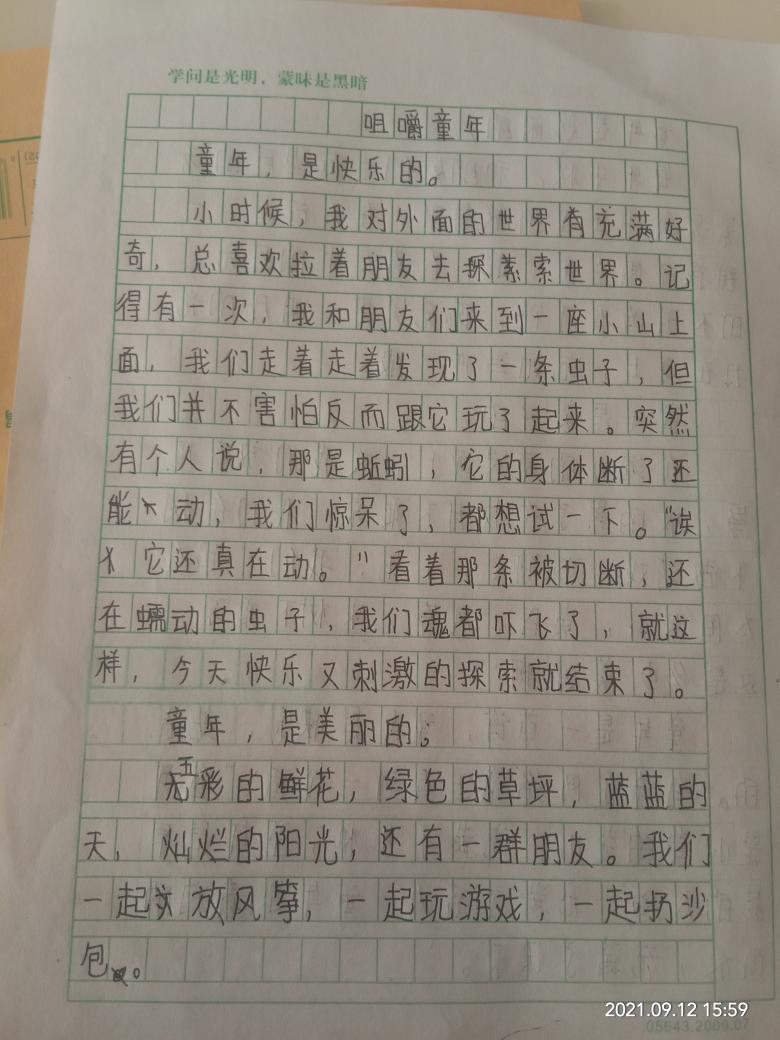 学问是光明，蒙昧是黑暗
咀嚼童年
童年，是快乐的。
小时候，我对外面的世界有充满好
奇，总喜欢拉着朋友去探索世界。记
得有一次，我和朋友们来到一座小山上
面，我们走着走着发现了一条虫子，但
我们并不害怕反而跟它玩了起来。突然
有个人说，那是蚯蚓，它的身体断了还
能动，我们惊呆了，都想试一下。“诶
它还真在动。”看着那条被切断，还
在蠕动的虫子，我们魂都吓飞了，就这
样，今天快乐又刺激的探索就结束了。
童年，是美丽的；
五彩的鲜花，绿色的草坪，蓝蓝的
天，灿烂的阳光，还有一群朋友。我们
一起放风筝，一起玩游戏，一起扔沙
包。
2021.09.12 15:59
05643.2009.07